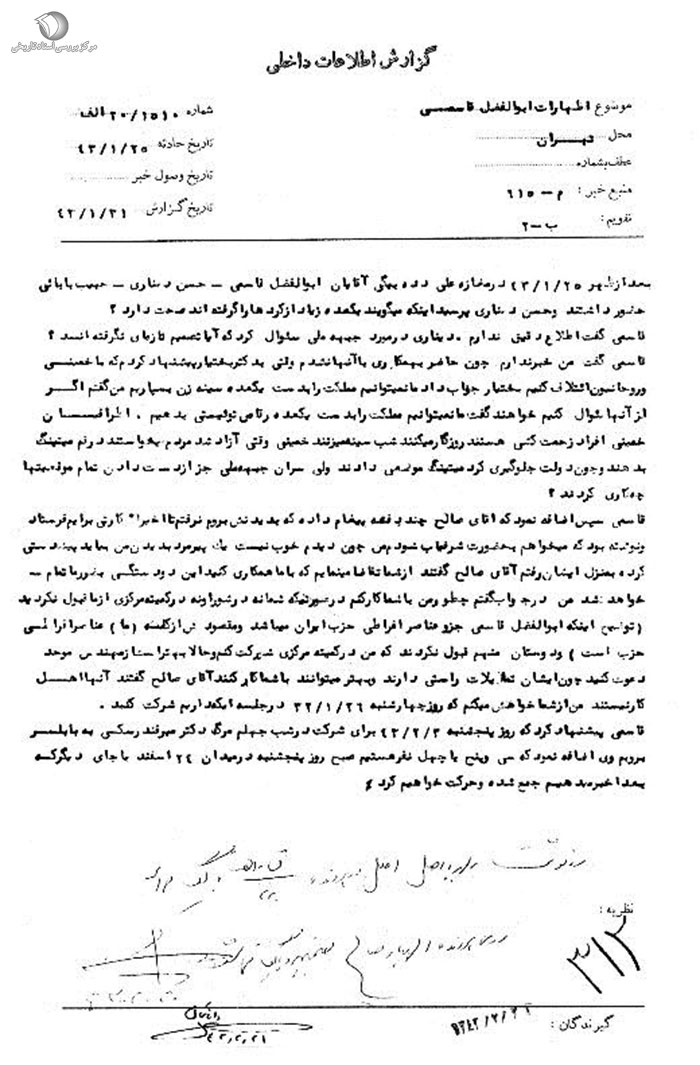 مرکز بررسی اسناد تاریخی
گزارش اطلاعات داخلی
موضوع اظهارات ابوالفضل قاسمی
محل تهران
عطف بشماره
منبع خبر : م – ٦١٥
تقویم : ب – ٢
شماره ٢٠/١٥١٠ الف
تاریخ حادثه ٤٣/١/٢٥
تاریخ وصول خبر
تاریخ گزارش ٤٣/١/٣١
بعدازظهر ٤٣/١/٢٥ در مغازه علی دده بیگی آقایان ابوالفضل قاسمی – حسن دیناری – حبیب بابائی
حضور داشتند وحسن دیناری پرسید اینکه میگویند یکعده زیاد از کردها را گرفته اند صحت دارد ؟
قاسمی گفت اطلاع دقیق ندارم . دیناری در مورد جبهه ملی سئوال کرد که آیا تصمیم تازه ای نگرفته اند ؟
قاسمی گفت من خبر ندارم چون حاضر بهمکاری با آنها نشدم وقتی بدکتر بختیار پیشنهاد کردم که با خمینی
وروحانیون ائتلاف کنیم بختیار جواب داد ما نمیتوانیم مملکت را بدست یکعده سینه زن بسپاریم من گفتم اگر
از آنها سئوال کنیم خواهند گفت ما نمیتوانیم مملکت را بدست یکعده رقاص توئیستی بدهیم . اطرافیان
خمینی افراد زحمت کشی هستند روزگار میکنند شب سینه میزنند خمینی وقتی آزاد شد مردم میخواستند در قم میتینگ
بدهند وچون دولت جلوگیری کرد میتینگ موضعی دادند ولی سران جبهه ملی جز از دست دادن تمام موقعیتها
چه کاری کردند ؟
قاسمی سپس اضافه نمود که آقای صالح چند دفعه پیغام داده که بدیدنش بروم نرفتم تا اخیرا" کارتی برایم فرستاد
ونوشته بود که میخواهم بحضورت شرفیاب شوم من چون دیدم خوب نیست یک پیرمرد بدیدن من بیاید پیشدستی
کرده بمنزل ایشان رفتم آقای صالح گفتند از شما تقاضا مینمایم که با ما همکاری کنید این دو دستگی بضرر ما تمام –
خواهد شد من در جواب گفتم چطور من با شما کار کنم در صورتیکه شما نه در شورا ونه در کمیته مرکزی از ما قبول نکردید
( توضیح اینکه ابوالفضل قاسمی جزو عناصر افراطی حزب ایران میباشد ومقصودش از کلمه ( ما ) عناصر افراطی
حزب است ) ودوستان متهم قبول نکردند که من در کمیته مرکزی شرکت کنم وحالا بهتر است از مهندس موحد
دعوت کنید چون ایشان تمایلات راستی دارند وبهتر میتوانند با شما کار کنند آقای صالح گفتند آنها اهل
کار نیستند من از شما خواهش میکنم که روز چهارشنبه ٤٣/١/٢٦ در جلسه ایکه داریم شرکت کنید .
قاسمی پیشنهاد کرد که روز پنجشنبه ٤٣/٢/٣ برای شرکت در شب چهلم مرگ دکتر میرفندرسکی به بابلسر
برویم وی اضافه نمود که سی وپنج یا چهل نفر هستیم صبح روز پنجشنبه در میدان ٢٤ اسفند یا جای دیگر که
بعدا خبر میدهیم جمع شده وحرکت خواهیم کرد
نظریه :
٣١٢
گیرندگان :